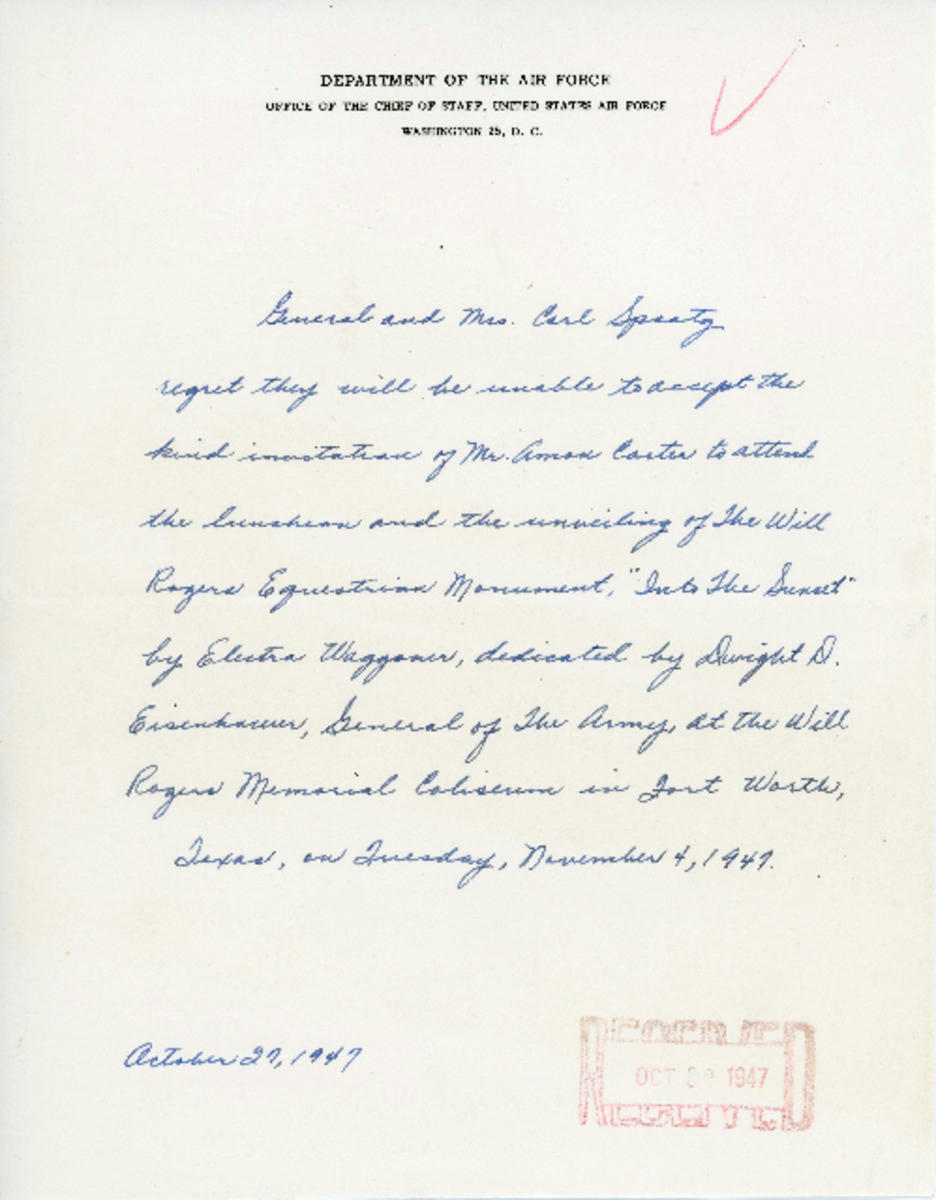 DEPARTMENT OF THE AIR FORCE
OFFICE OF THE CHIEF OF STAFF, UNITED STATES AIR FORCE
WASHINGTON 25, D. C.
General and Mrs. Carl Spaatz
regret they will be unable to accept the
kind invitation of Mr. Amon Carter to attend
the luncheon and the unveiling of The Will
Rogers Equestrian Monument, "Into The Sunset"
by Electra Waggoner, dedicated by Dwight D.
Eisenhower, General of The Army, at the Will
Rogers Memorial Coliseum in Fort Worth,
Texas, on Tuesday, November 4, 1947.
October 27, 1947
RECEIVED
OCT 1947